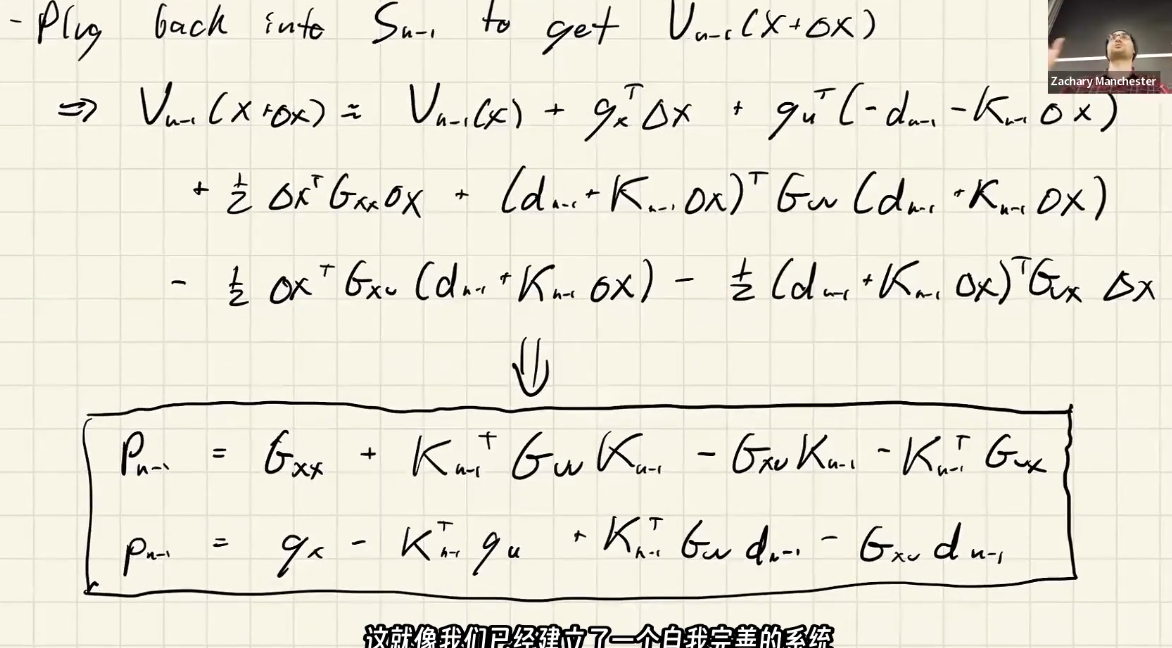 - Plug back into Sₙ₋₁ to get Vₙ₋₁(x+Δx)
Zachary Manchester
⇒ Vₙ₋₁(x+Δx) ≈ Vₙ₋₁(x) + gₓᵀΔx + gᵤᵀ(-dₙ₋₁ - Kₙ₋₁Δx)
+ ½ Δxᵀ Gxx Δx + (dₙ₋₁ + Kₙ₋₁Δx)ᵀ Guu (dₙ₋₁ + Kₙ₋₁Δx)
- ½ Δxᵀ Gxu (dₙ₋₁ + Kₙ₋₁Δx) - ½ (dₙ₋₁ + Kₙ₋₁Δx)ᵀ Gux Δx
⇓
Pₙ₋₁ = Gxx + Kₙ₋₁ᵀ Guu Kₙ₋₁ - Gxu Kₙ₋₁ - Kₙ₋₁ᵀ Gux
pₙ₋₁ = gₓ - Kₙ₋₁ᵀ gᵤ + Kₙ₋₁ᵀ Guu dₙ₋₁ - Gxu dₙ₋₁
这就像我们已经建立了一个自我完善的系统